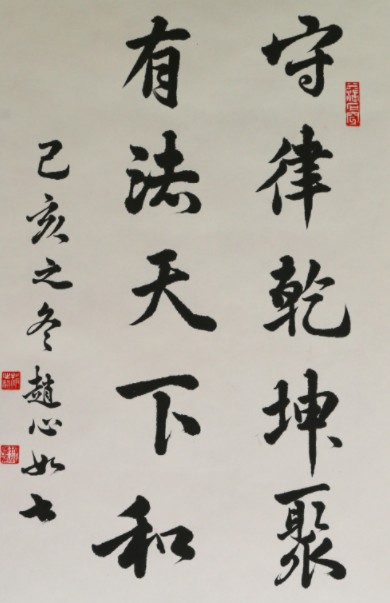 守律乾坤聚
有法天下和
己亥之冬趙心如书